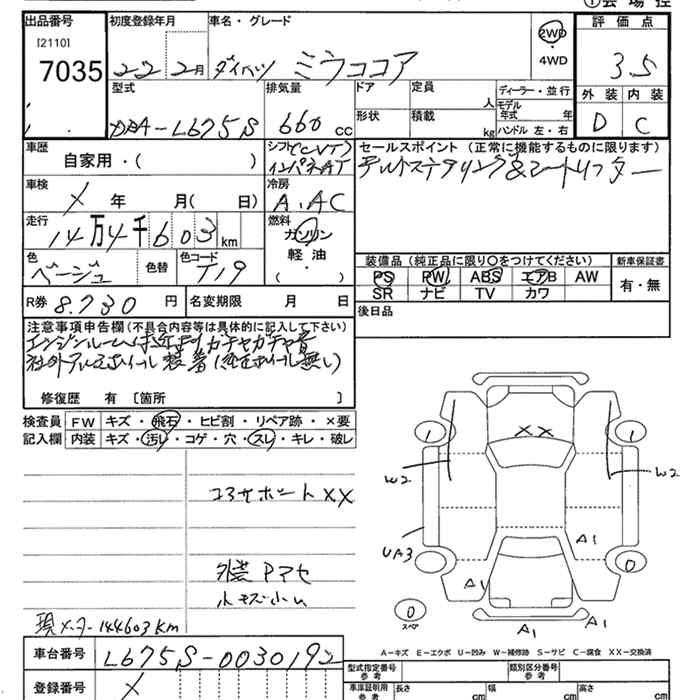 ①会場控
出品番号 初度登録年月 車名・グレード 評価点
[2110] 2WD
7035 22 2月 ダイハツ ミラココア ・4WD 3.5
型式 排気量 ドア 定員 人 ディーラー・並行 外装 内装
DBA-L675S 660 CC 形状 積載 kg モデル年式 年 D C
ハンドル 左・右
車歴 シフト(CVT) セールスポイント (正常に機能するものに限ります)
自家用・( ) インパネAT チルトステアリング&シートリフター
車検 冷房
X 年 月( 日) A.AC
走行 燃料
14万4千603km ガソリン
色 色替 色コード 軽油 装備品 (純正品に限り〇をつけてください) 新車保証書
ベージュ T19 ・( ) PS PW ABS エアB AW 有・無
SR ナビ TV カワ
R券 8.730 円 名変期限 月 日 後日品
注意事項申告欄(不具合内容等は具体的に記入して下さい)
エンジンルーム ガチャガチャ音
社外アルミホイール装着(純正ホイール無し)
修復歴 有 〔箇所 〕
検査員 FW キズ・飛石・ヒビ割・リペア跡・×要
記入欄 内装 キズ・汚レ・コゲ・穴・スレ・キレ・破レ
1 XX 1
W2 W2
コアサポートXX
A1
UA3 0
外装 Pマセ
A1
小キズ小凹
0
スペア A1 A1
現メーター144603km
A-キズ E-エクボ U-凹み W-補修跡 S-サビ C-腐食 XX-交換済
車台番号 L675S-0030192
型式指定番号 参考 類別区分番号 参考
登録番号 X 車庫証明用 参考 長さ cm 幅 cm 高さ cm